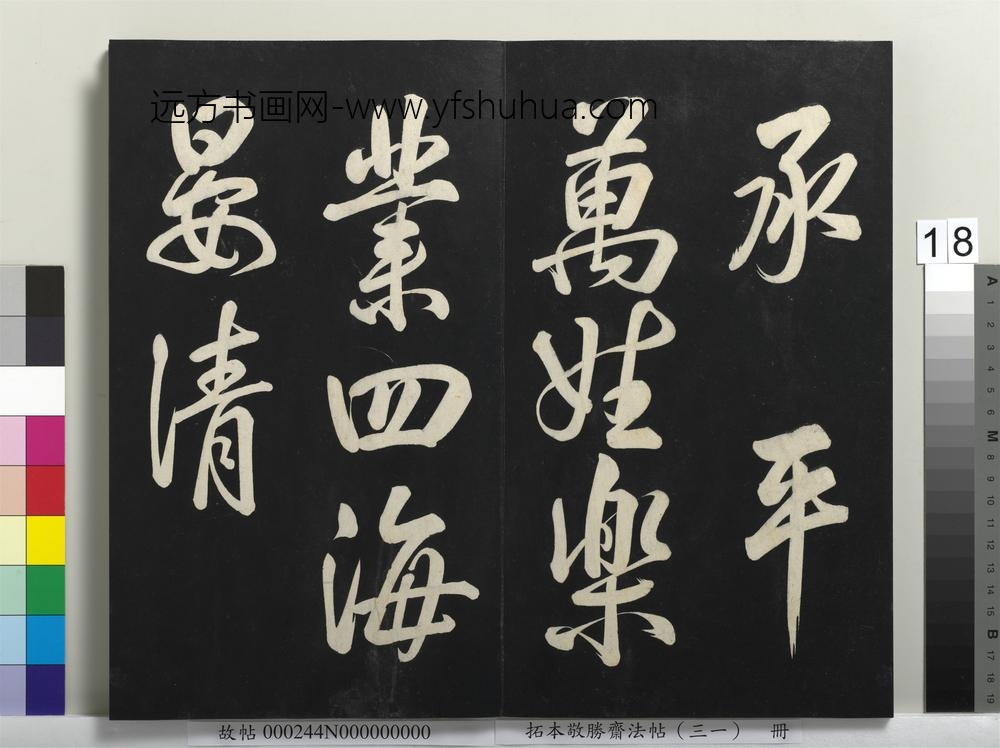 承平
萬姓樂
業四海
晏清
远方书画网-www.yfshuhua.com
18
A
1
2
3
4
5
6
M
8
9
10
11
12
13
14
15
B
17
18
19
故帖 000244N000000000
拓本敬勝齋法帖（三一） 冊